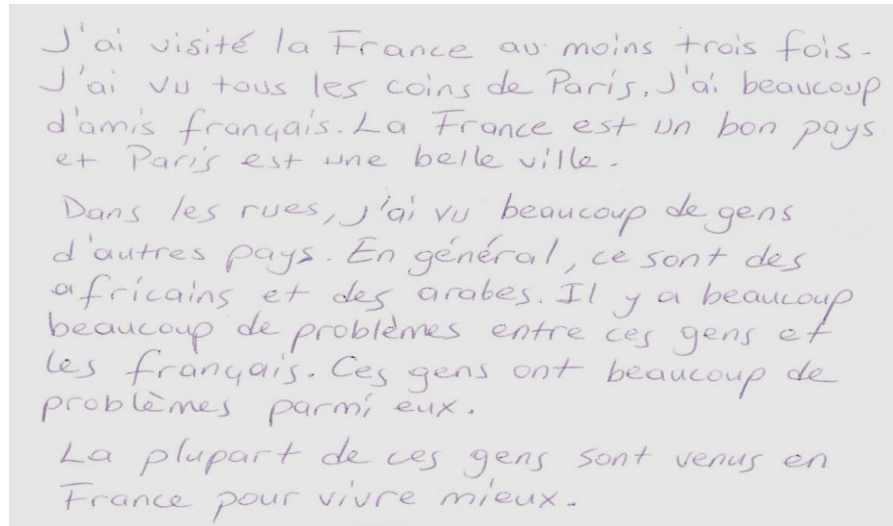 J'ai visité la France au moins trois fois.
J'ai vu tous les coins de Paris. J'ai beaucoup
d'amis français. La France est un bon pays
et Paris est une belle ville.
Dans les rues, j'ai vu beaucoup de gens
d'autres pays. En général, ce sont des
africains et des arabes. Il y a beaucoup
beaucoup de problèmes entre ces gens et
les français. Ces gens ont beaucoup de
problèmes parmi eux.
La plupart de ces gens sont venus en
France pour vivre mieux.